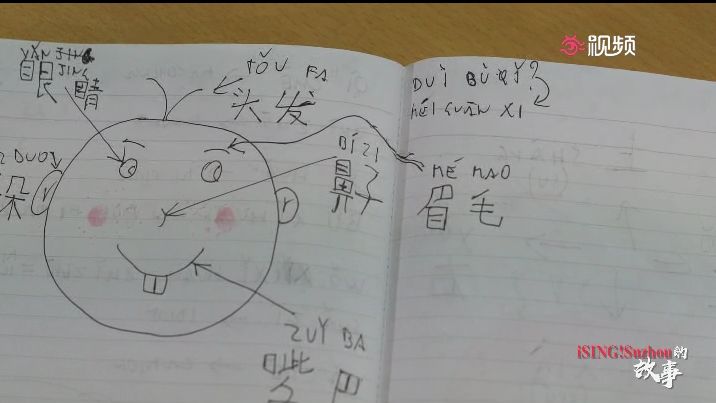 视频
YǍN JING
JING
眼睛
TǑU FA
头发
DUÌ BÙ QǏ?
MÉI GUĀN XI
DUO
朵
BÍ ZI
鼻子
MÉ MAO
眉毛
ZUǏ BA
嘴巴
iSING!Suzhou的
故事